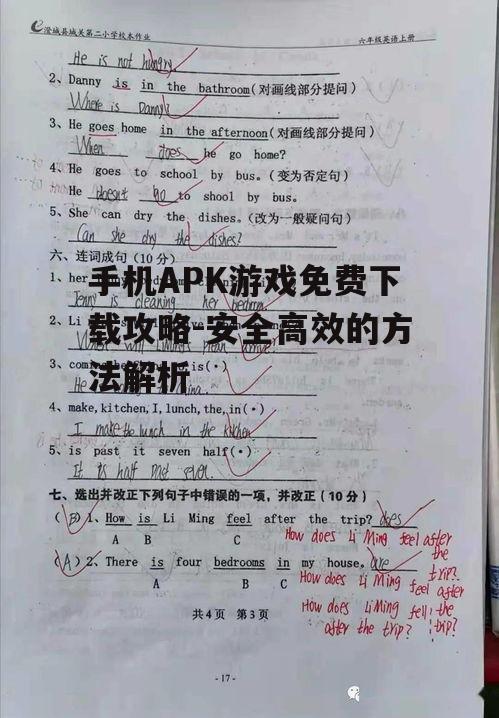 澄城县城关第二小学校本作业 六年级英语上册
He is not hungry
2、Danny is in the bathroom(对画线部分提问)
Where is Danny?
3、He goes home in the afternoon(对画线部分提问)
When does he go home?
4、He goes to school by bus.(变为否定句)
He doesn't go to shool by bus.
5、She can dry the dishes.(改为一般疑问句)
Can she dry the dishes?
六、连词成句(10分)
1、her
手机APK游戏免费下
Jenny is cleaning her bedroom.
2、Li
载攻略-安全高效的方
3、com is(·)
法解析
He
4、make,kitchen,I,lunch,the,in(·)
I make the lunch in the kitchen
5、is past it seven half(·)
It is half past seven.
七、选出并改正下列句子中错误的一项,并改正(10分)
(B)1、How is Li Ming feel after the trip? does
A B C
How does Li Ming feel after the trip?
(A)2、There is four bedrooms in my house. are
A B C
How does Li Ming feel after the trip?
How does Li Ming fell after the trip?
共4页 第3页
-17-